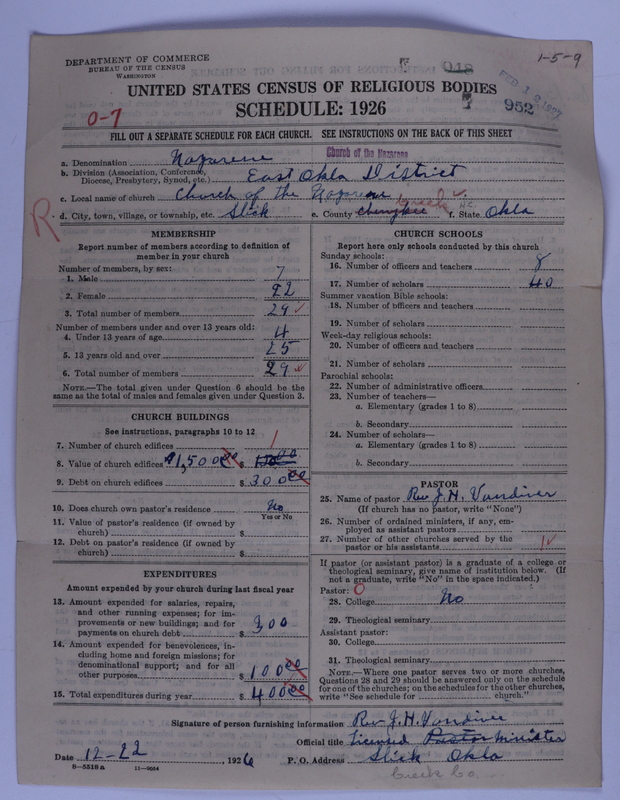 DEPARTMENT OF COMMERCE
BUREAU OF THE CENSUS
WASHINGTON
918
1-5-9
FEB 12 1927
UNITED STATES CENSUS OF RELIGIOUS BODIES
SCHEDULE: 1926
952
0-7
FILL OUT A SEPARATE SCHEDULE FOR EACH CHURCH. SEE INSTRUCTIONS ON THE BACK OF THIS SHEET
a. Denomination Nazarene Church of the Nazarene
b. Division (Association, Conference, Diocese, Presbytery, Synod, etc.) East Okla District
c. Local name of church Church of the Nazarene
R
d. City, town, village, or township, etc. Slick e. County Creek f. State Okla
MEMBERSHIP
Report number of members according to definition of member in your church
Number of members, by sex:
1. Male 7
2. Female 22
3. Total number of members 29
Number of members under and over 13 years old:
4. Under 13 years of age 4
5. 13 years old and over 25
6. Total number of members 29
NOTE.—The total given under Question 6 should be the same as the total of males and females given under Question 3.
CHURCH BUILDINGS
See instructions, paragraphs 10 to 12
7. Number of church edifices 1
8. Value of church edifices $1,500 00 $
9. Debt on church edifices $ 300 00
10. Does church own pastor's residence No
Yes or No
11. Value of pastor's residence (if owned by church) $
12. Debt on pastor's residence (if owned by church) $
EXPENDITURES
Amount expended by your church during last fiscal year
13. Amount expended for salaries, repairs, and other running expenses; for improvements or new buildings; and for payments on church debt $ 300
14. Amount expended for benevolences, including home and foreign missions; for denominational support; and for all other purposes $ 100 00
15. Total expenditures during year $ 400 00
CHURCH SCHOOLS
Report here only schools conducted by this church
Sunday schools:
16. Number of officers and teachers 8
17. Number of scholars 40
Summer vacation Bible schools:
18. Number of officers and teachers
19. Number of scholars
Week-day religious schools:
20. Number of officers and teachers
21. Number of scholars
Parochial schools:
22. Number of administrative officers
23. Number of teachers—
a. Elementary (grades 1 to 8)
b. Secondary
24. Number of scholars—
a. Elementary (grades 1 to 8)
b. Secondary
PASTOR
25. Name of pastor Rev J. H. Vandiver
(If church has no pastor, write "None")
26. Number of ordained ministers, if any, employed as assistant pastors
27. Number of other churches served by the pastor or his assistants 1
If pastor (or assistant pastor) is a graduate of a college or theological seminary, give name of institution below. (If not a graduate, write "No" in the space indicated.)
Pastor: 0
28. College No
29. Theological seminary
Assistant pastor:
30. College
31. Theological seminary
NOTE.—Where one pastor serves two or more churches, Questions 28 and 29 should be answered only on the schedule for one of the churches; on the schedules for the other churches, write "See schedule for church."
Signature of person furnishing information Rev J. H. Vandiver
Official title Licensed Pastor Minister
Date 12-22, 1926 P. O. Address Slick Okla
8-5318a 11-9064
Creek Co.